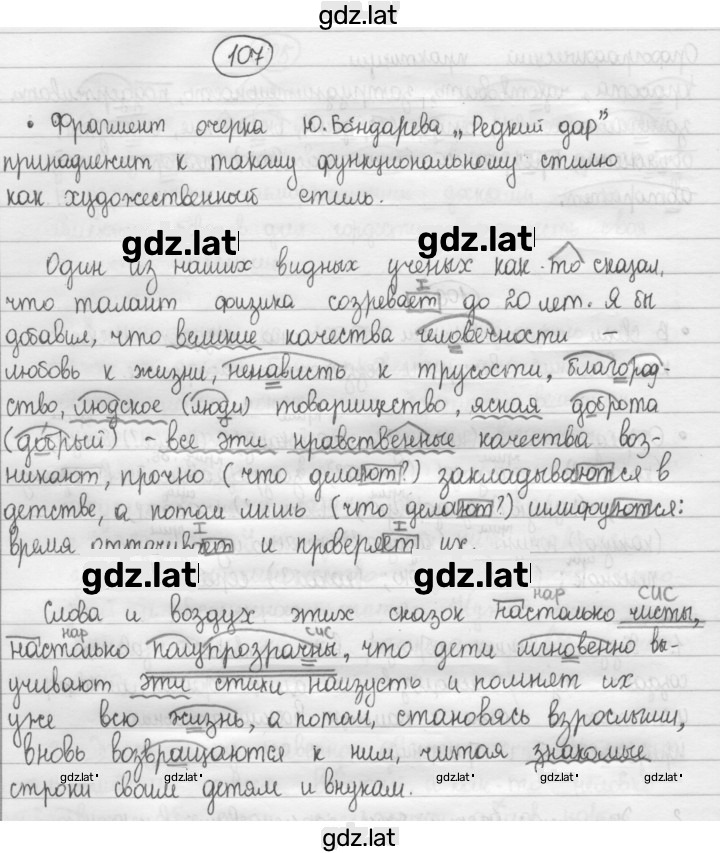 gdz.lat
107
• Фрагмент очерка Ю. Бондарева „Редкий дар"
принадлежит к такому функциональному стилю
как художественный стиль.
gdz.lat gdz.lat
Один из наших видных ученых как-то сказал,
что талант физика созревает до 20 лет. Я бы
добавил, что великие качества человечности –
любовь к жизни, ненависть к трусости, благород-
ство, людское (люди) товарищество, ясная доброта
(добрый) – все эти нравственные качества воз-
никают, прочно (что делают?) закладываются в
детстве, а потом лишь (что делают?) шлифуются:
время оттачивает и проверяет их.
gdz.lat gdz.lat
нар сис
Слова и воздух этих сказок настолько чисты,
нар сис
настолько полупрозрачны, что дети мгновенно вы-
учивают эти стихи наизусть и помнят их
уже всю жизнь, а потом, становясь взрослыми,
вновь возвращаются к ним, читая знакомые
gdz.lat gdz.lat gdz.lat gdz.lat
строки своим детям и внукам.
gdz.lat